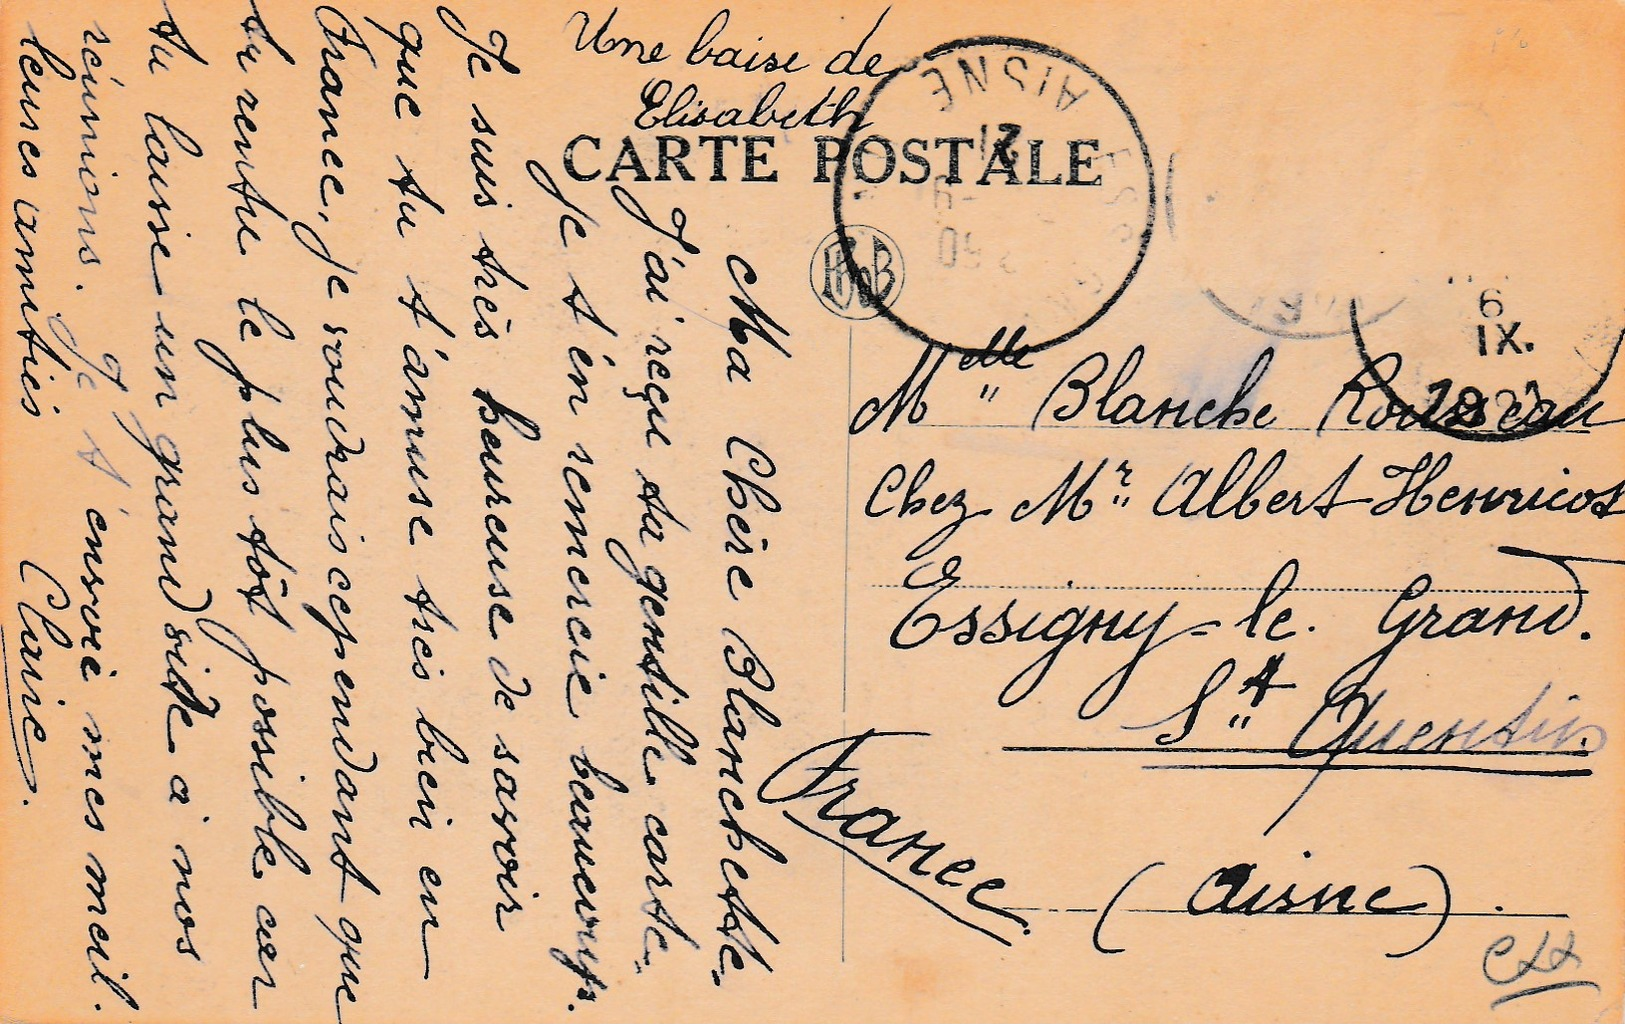 Une baise de
Elisabeth
CARTE POSTALE
Ma Chère Blanchette.
J'ai reçu ta gentille carte.
Je t'en remercie beaucoup.
Je suis très heureuse de savoir
que tu t'amuse très bien en
France, je voudrais cependant que
tu rentre le plus tôt possible car
tu laisse un grand vide à nos
réunions. Je t'envoie mes meil.
leures amitiés Claire.
AISNE
6
IX.
Melle Blanche Rousseau
Chez Mr Albert Henricot
Essigny-le. Grand.
St Quentin.
France
(Aisne).